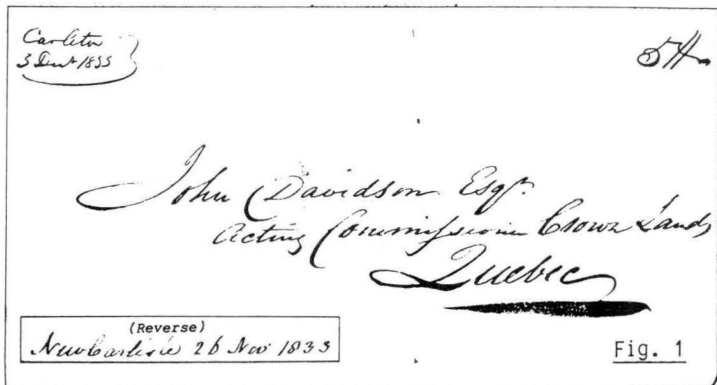 Carleton
3 Decr 1833
5H
John Davidson Esqr.
Acting Commissioner Crown Lands
Quebec
(Reverse)
New Carlisle 26 Nov 1833
Fig. 1